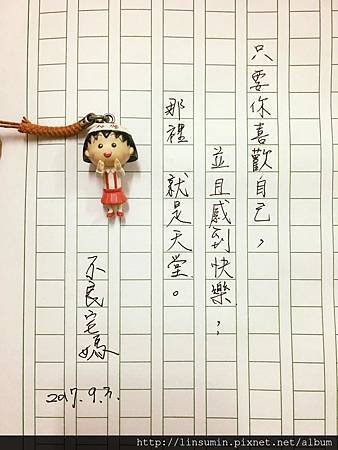 只要你喜歡自己，
並且感到快樂，
那裡就是天堂。
不良宅媽
2017.9.3.
http://linsumin.pixnet.net/album